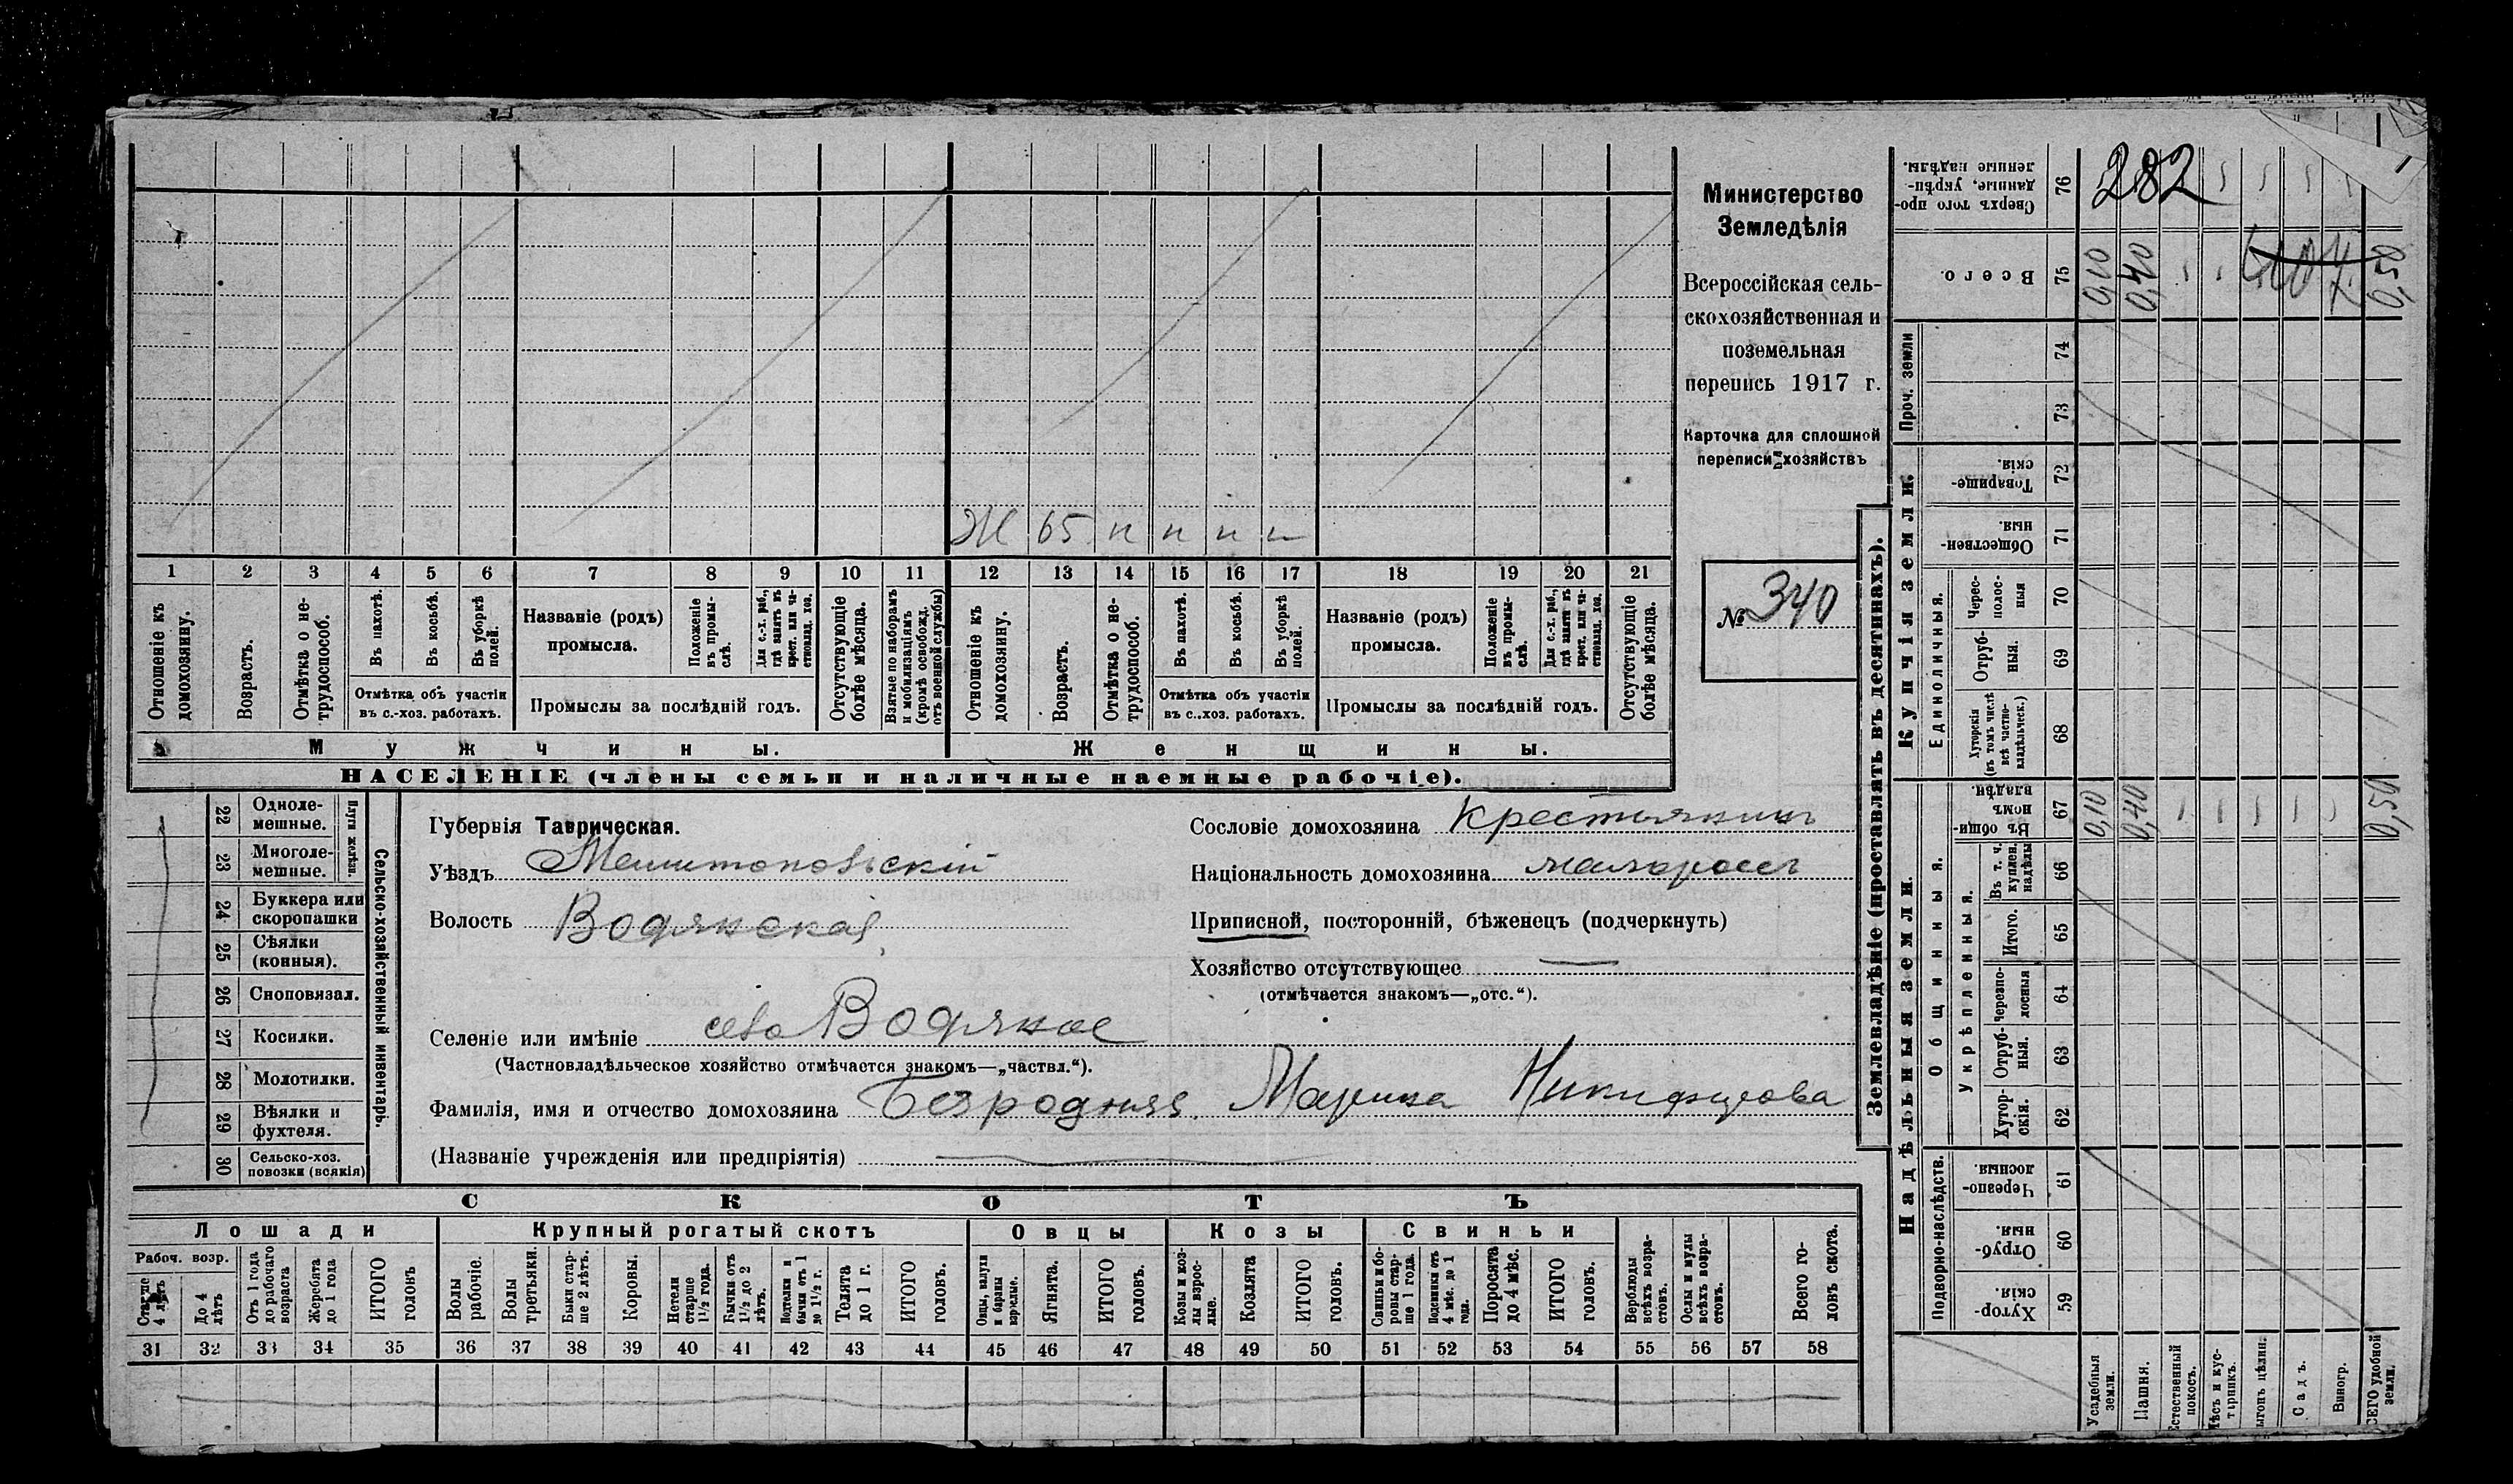 Министерство
Земледѣлія
Всероссійская сель-
скохозяйственная и
поземельная
перепись 1917 г.
Карточка для сплошной
переписи хозяйствъ
№ 340
Ж 65 н н н н
1 2 3 4 5 6 7 8 9 10 11 12 13 14 15 16 17 18 19 20 21
Отношеніе къ домохозяину.
Возрастъ.
Отмѣтка о не-трудоспособ.
Въ пахотѣ.
Въ косьбѣ.
Въ уборкѣ полей.
Отмѣтка объ участіи въ с.-хоз. работахъ.
Названіе (родъ) промысла.
Положеніе въ промы-слѣ.
Для с.-х. раб., гдѣ занятъ въ крест. или ча-стновлад. хоз.
Промыслы за послѣдній годъ.
Отсутствующіе болѣе мѣсяца.
Взятые по наборамъ и мобилизаціямъ (кромѣ освобожд. отъ военной службы)
Отношеніе къ домохозяину.
Возрастъ.
Отмѣтка о не-трудоспособ.
Въ пахотѣ.
Въ косьбѣ.
Въ уборкѣ полей.
Отмѣтка объ участіи въ с..хоз. работахъ.
Названіе (родъ) промысла.
Положеніе въ промы-слѣ.
Для с.-х. раб., гдѣ заняты въ крест. или ча-стновлад. хоз.
Промыслы за послѣдній годъ.
Отсутствующіе болѣе мѣсяца.
Мужчины.
Женщины.
НАСЕЛЕНІЕ (члены семьи и наличные наемные рабочіе).
Сельско-хозяйственный инвентарь.
Плуги желѣзн.
22 Одноле-мешные.
23 Многоле-мешные.
24 Буккера или скоропашки
25 Сѣялки (конныя).
26 Сноповязал.
27 Косилки.
28 Молотилки.
29 Вѣялки и фухтеля.
30 Сельско-хоз. повозки (всякія)
Губернія Таврическая.
Уѣздъ Мелитопольскій
Волость Водянская
Селеніе или имѣніе село Водяное
(Частновладѣльческое хозяйство отмѣчается знакомъ—„частвл.“).
Фамилія, имя и отчество домохозяина Безродняя Марина Никифорова
(Названіе учрежденія или предпріятія)
Сословіе домохозяина Крестьянинъ
Національность домохозяина малороссъ
Приписной, посторонній, бѣженецъ (подчеркнуть)
Хозяйство отсутствующее
(отмѣчается знакомъ—„отс.“).
СКОТЪ
Лошади
Крупный рогатый скотъ
Овцы
Козы
Свиньи
Рабоч. возр.
Старше 4 лѣтъ
До 4 лѣтъ
Отъ 1 года до рабочаго возраста
Жеребята до 1 года
ИТОГО головъ
Волы рабочіе.
Волы третьяки.
Быки стар-ше 2 лѣтъ.
Коровы.
Нетели старше 1½ года.
Бычки отъ 1½ до 2 лѣтъ.
Подтелки и бычки отъ 1 до 1½ г.
Телята до 1 г.
ИТОГО головъ.
Овцы, валухи и бараны взрослые.
Ягнята.
ИТОГО головъ.
Козы и коз-лы взрос-лые.
Козлята
ИТОГО головъ.
Свиньи и бо-ровы стар-ше 1 года.
Подсвинки отъ 4 мѣс. до 1 года.
Поросята до 4 мѣс.
ИТОГО головъ.
Верблюды всѣхъ возра-стовъ.
Ослы и мулы всѣхъ возра-стовъ.
Всего го-ловъ скота.
31 32 33 34 35 36 37 38 39 40 41 42 43 44 45 46 47 48 49 50 51 52 53 54 55 56 57 58
Землевладѣніе (проставлять въ десятинахъ).
Купчія земли.
Надѣльныя земли.
Сверхъ того про-данные, укрѣп-ленные надѣлы. 76
282
Всего. 75 0,10 0,40 0,50
Проч. земли
74
73
Товарище-скія. 72
Обществен-ныя. 71
Единоличныя.
Черес-полос-ныя 70
Отруб-ныя. 69
Хуторскія (въ томъ числѣ всѣ частно-владѣльческ.) 68
Общинныя.
Въ общи-номъ владѣн. 67 0,10 0,40 0,50
Укрѣпленныя.
Въ т. ч. куплен. надѣлы 66
Итого. 65
Черезпо-лосныя 64
Отруб-ныя. 63
Хутор-скія. 62
Подворно-наслѣдств.
Черезпо-лосныя 61
Отруб-ныя. 60
Хутор-скія. 59
Усадебныя земли.
Пашня.
Естественный покосъ.
Лѣсъ и кус-тарникъ.
Выгонъ цѣлин.
Садъ.
Виногр.
ВСЕГО удобной земли.